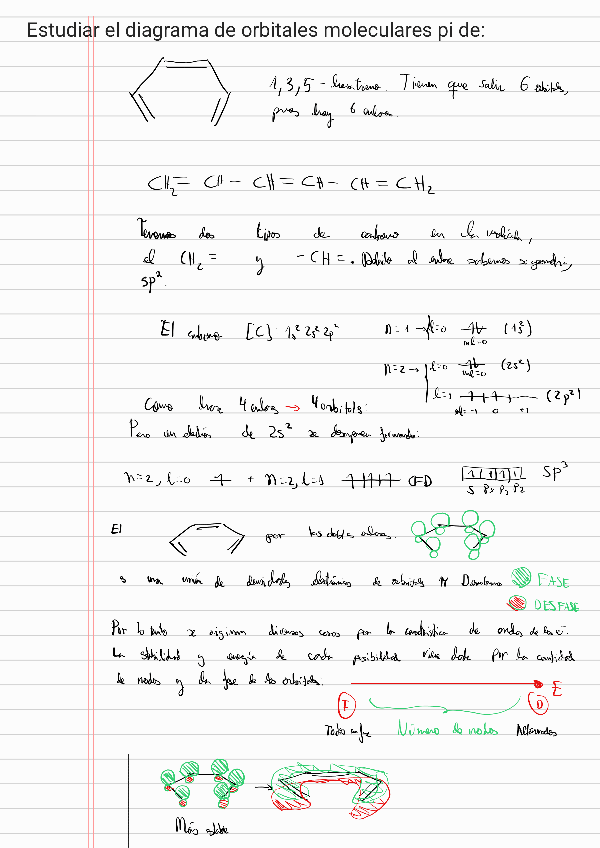 Estudiar el diagrama de orbitales moleculares pi de:
1,3,5 - hexatrieno. Tienen que salir 6 orbitales,
pues hay 6 carbonos.
CH2= CH - CH = CH - CH = CH2
Tenemos dos tipos de carbono en la molécula,
el CH2 = y -CH = . Debido al enlace sabemos su geometría,
sp2.
El carbono [C]: 1s2 2s2 2p2
n=1 → l=0 (1s2)
ml=0
n=2 → l=0 (2s2)
ml=0
l=1 (2p2)
ml=-1 0 +1
Como hace 4 enlaces → 4 orbitales:
Pero un electrón de 2s2 se desaparea formando:
n=2, l=0 + n=2, l=1 sp3
s px py pz
El por los dobles enlaces.
es una unión de densidades electrónicas de orbitales
FASE
DESFASE
Por lo tanto se originan diversos casos por la característica de ondas de los e-.
La estabilidad y energía de cada posibilidad viene dada por la cantidad
de nodos y la fase de los orbitales. E
F D
Todos en fase Número de nodos Alternados
Más estable